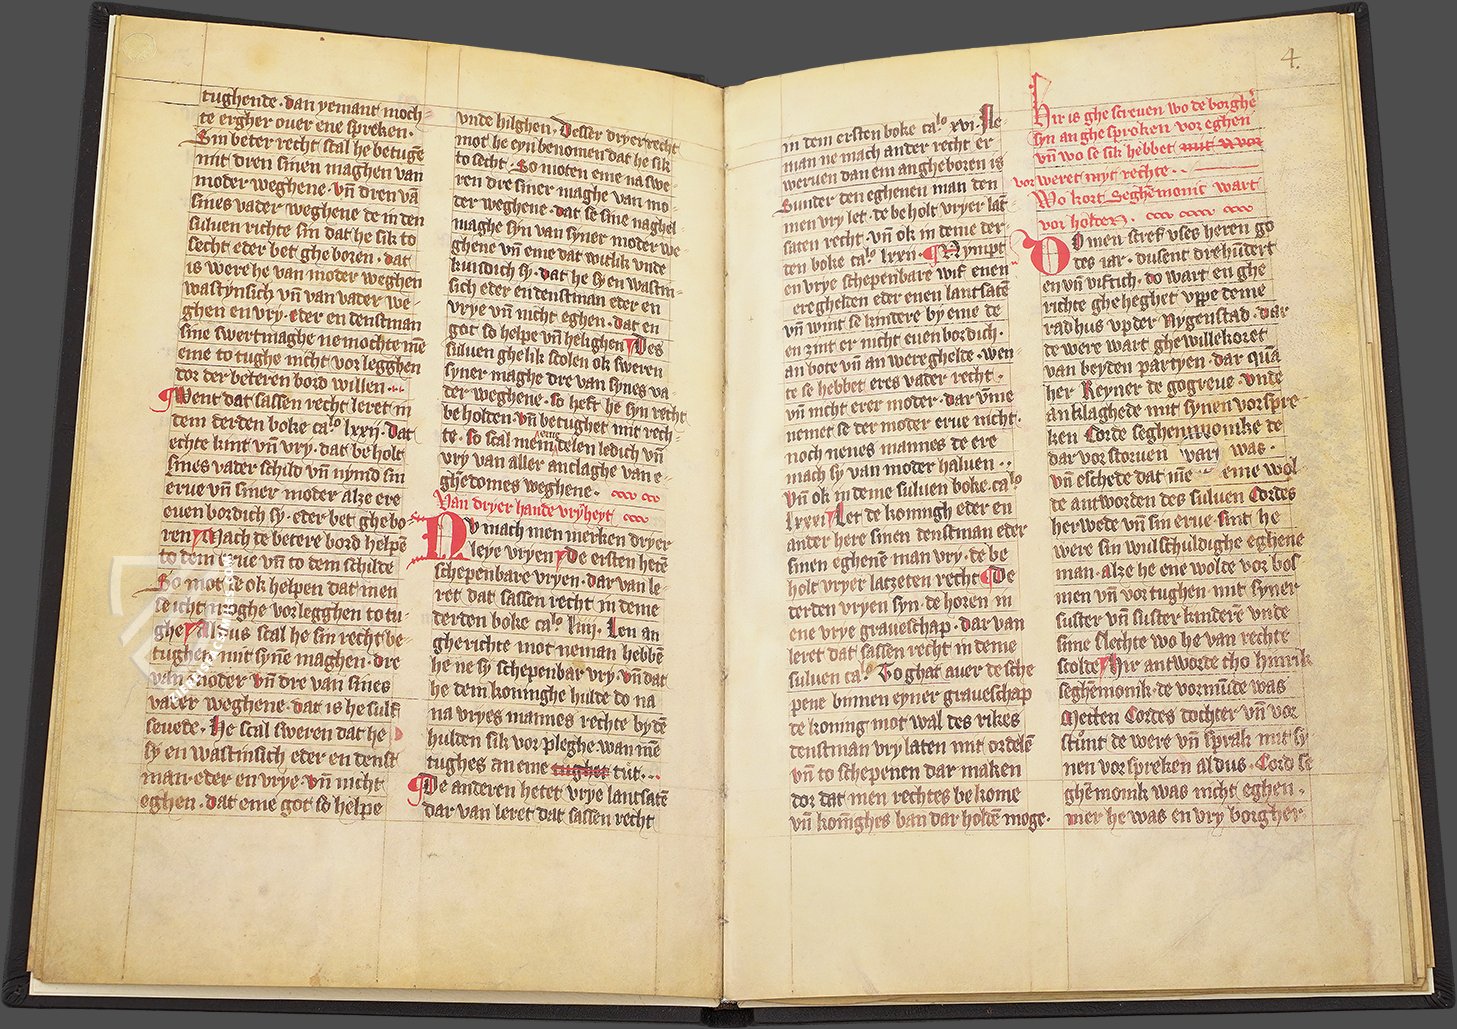 tughende · dan yemant moch
te ergher ouer ene spreken ·
Sin beter recht scal he betugē
mit dren sinen maghen van
moder weghene · vn̄ dren vā
sines vader weghene de in den
suluen richte sin dat he sik to
secht eder bet ghe boren · dat
is were he van moder weghen
wastynsich vn̄ van vader we-
ghen en vry · eder en denstman
sine swertmaghe ne mochte nē
eme to tughe nicht vor legghen
dor der beteren bord willen ·
¶ Went dat sassen recht leret in
dem derden boke caͦ lxxij · dat
echte kint vn̄ vry · dat be holt
sines vader schild vn̄ nymd sin
erue vn̄ siner moder alze ere
euen bordich sy · eder bet ghe bo-
ren ¶ Mach de betere bord helpē
to dem erue vn̄ to dem schilde
So mot se ok helpen dat men
se icht moghe vorlegghen to tu-
ghe ¶ Aldus scal he sin recht be-
tughen mit synē maghen · dre
van moder vn̄ dre van sines
vader weghene · dat is he sulf
seuede · He scal sweren dat he
sy en wastinsich eder en denst
man · eder en vrye · vn̄ nicht
eghen · dat eme got so helpe
vnde hilghen · Desser dryer recht
mot he eyn benomen dat he sik
to secht · So moten eme na swe-
ren dre siner maghe van mo
der weghene · dat se sine naghel
maghe syn van syner moder we
ghene vn̄ eme dat witlik vnde
kuisdich sy · dat he sy en wastin-
sich eder en denstman eder en
vrye vn̄ nicht eghen · dat en
got so helpe vn̄ helighen ¶ Des
suluen ghelik scolen ok sweren
syner maghe dre van synes va-
der weghene · so heft he syn recht
be holden · vn̄ betughet mit rech-
te · so scal men en delen ledich vn̄
vry van aller anclaghe van e-
ghēdomes weghene ·
Van dryer hande vryheyt
Nv mach men merken dryer
leye vryen ¶ De ersten hetē
schepenbare vryen · dar van le-
ret dat sassen recht in deme
derden boke caͦ liiij · Len an
gherichte mot neman hebbē
he ne sy schepenbar vry · vn̄ dat
he dem koninghe hulde do na
na vryes mannes rechte by dē
hulden sik vor pleghe wan mē
tughes an eme tughet tut ·
¶ De anderen hetet vrye lantsatē
dar van leret dat sassen recht
4.
in dem ersten boke caͦ xvi · Ne
man ne mach ander recht er
weruen dan em angheboren is
Sunder den eghenen man den
men vry let · de be holt vryer lāt
saten recht · vn̄ ok in deme der
den boke caͦ lxxij · ¶ Nympt
en vrye schepenbare wif euen
ere ghelden eder euen lantsatē
vn̄ wint se kindere by eme de
en zint er nicht euen bordich ·
an bote vn̄ an were ghelde · wen-
te se hebbet eres vader recht ·
vn̄ nicht erer moder · dar vm̄e
nemet se der moder erue nicht ·
noch nenes mannes de ere
mach sy van moder haluen ·
vn̄ ok in deme suluen boke · caͦ
lxxxi ¶ Let de koningh eder en
ander here sinen denstman eder
sinen eghenē man vry · de be
holt vryer latzeten recht ¶ De
derden vryen syn · de horen in
ene vrye graueschap · dar van
leret dat sassen recht in deme
suluen caͦ · To ghat auer de sche
pene binnen eyner graueschap
de koning mot wal des rikes
denstman vry laten mit ordelē
vn̄ to schepenen dar maken
dor dat men rechtes be kome
vn̄ kōnighes ban dar holdē moge ·
Hir is ghe screuen wo de borghē
syn an ghe sproken vor eghen
vn̄ wo se sik hebbet mit vor
vor weret myt rechte ·
Wo kort Seghēmonit wart
vor holden ·
DO men scref vses heren go
des iar · dusent drehūdert
en vn̄ viftich · do wart en ghe
richte ghe heghet vppe deme
radhus vp der Nygenstad · dar
de were wart ghe willekoret
van beyden partyen · dar quā
her Reyner de gogreue · vnde
anklaghede mit synen vorspre-
ken Corde seghenmonike de
dar vorstoruen was ·
vn̄ eschede dat mē eme wol
de antworden des suluen Cordes
herwede vn̄ sin erue · sint he
were sin vulschuldighe eghene
man · alze he ene wolde vor bof
men vn̄ vortughen mit syner
suster vn̄ suster kinderē vnde
sine slechte wo he van rechte
scolde ¶ Hir antworde tho hinrik
seghēmonik · de vormūde was
Metken Cordes dochter vn̄ vor
stūnt de were vn̄ sprak mit sy
nen vor spreken aldus · Cord se
ghēmonik was nicht eghen ·
mer he was en vry borgher